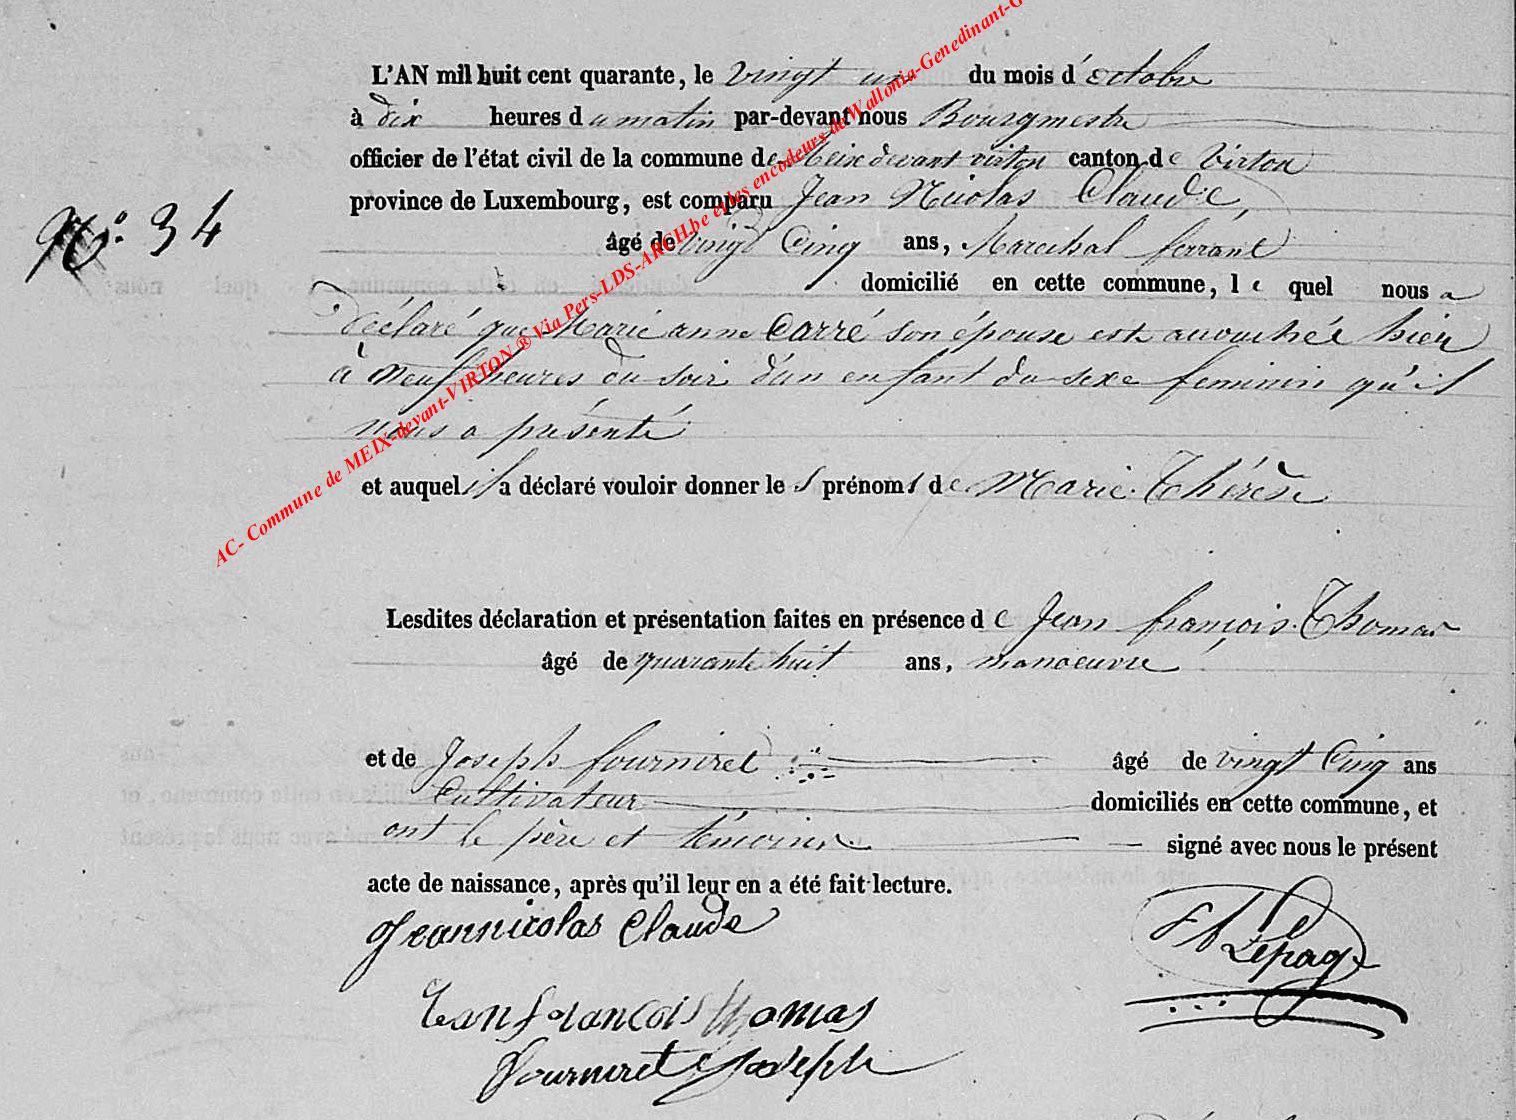 L'AN mil huit cent quarante, le vingt un du mois d'octobre
à dix heures du matin par-devant nous Bourgmestre
officier de l'état civil de la commune de Meix devant virton canton de Virton
province de Luxembourg, est comparu Jean Nicolas Claude,
N.° 34
âgé de vingt Cinq ans, Marechal ferrant
domicilié en cette commune, le quel nous a
déclaré que Marie anne Carré son épouse est accouchée hier
à neuf heures du soir d'un enfant du sexe feminin qu'il
nous a présenté
et auquel il a déclaré vouloir donner les prénoms de Marie Thérèse
AC- Commune de MEIX-devant-VIRTON ® Via Pers-LDS-ARCH.be et les encodeurs de Wallonia-Genedinant-G
Lesdites déclaration et présentation faites en présence de Jean françois Thomas
âgé de quarante huit ans, manoeuvre
et de Joseph fourniret âgé de vingt Cinq ans
Cultivateur domiciliés en cette commune, et
ont le père et témoins signé avec nous le présent
acte de naissance, après qu'il leur en a été fait lecture.
Jeannicolas Claude
Lepage
Jean françois thomas
fourniret joseph